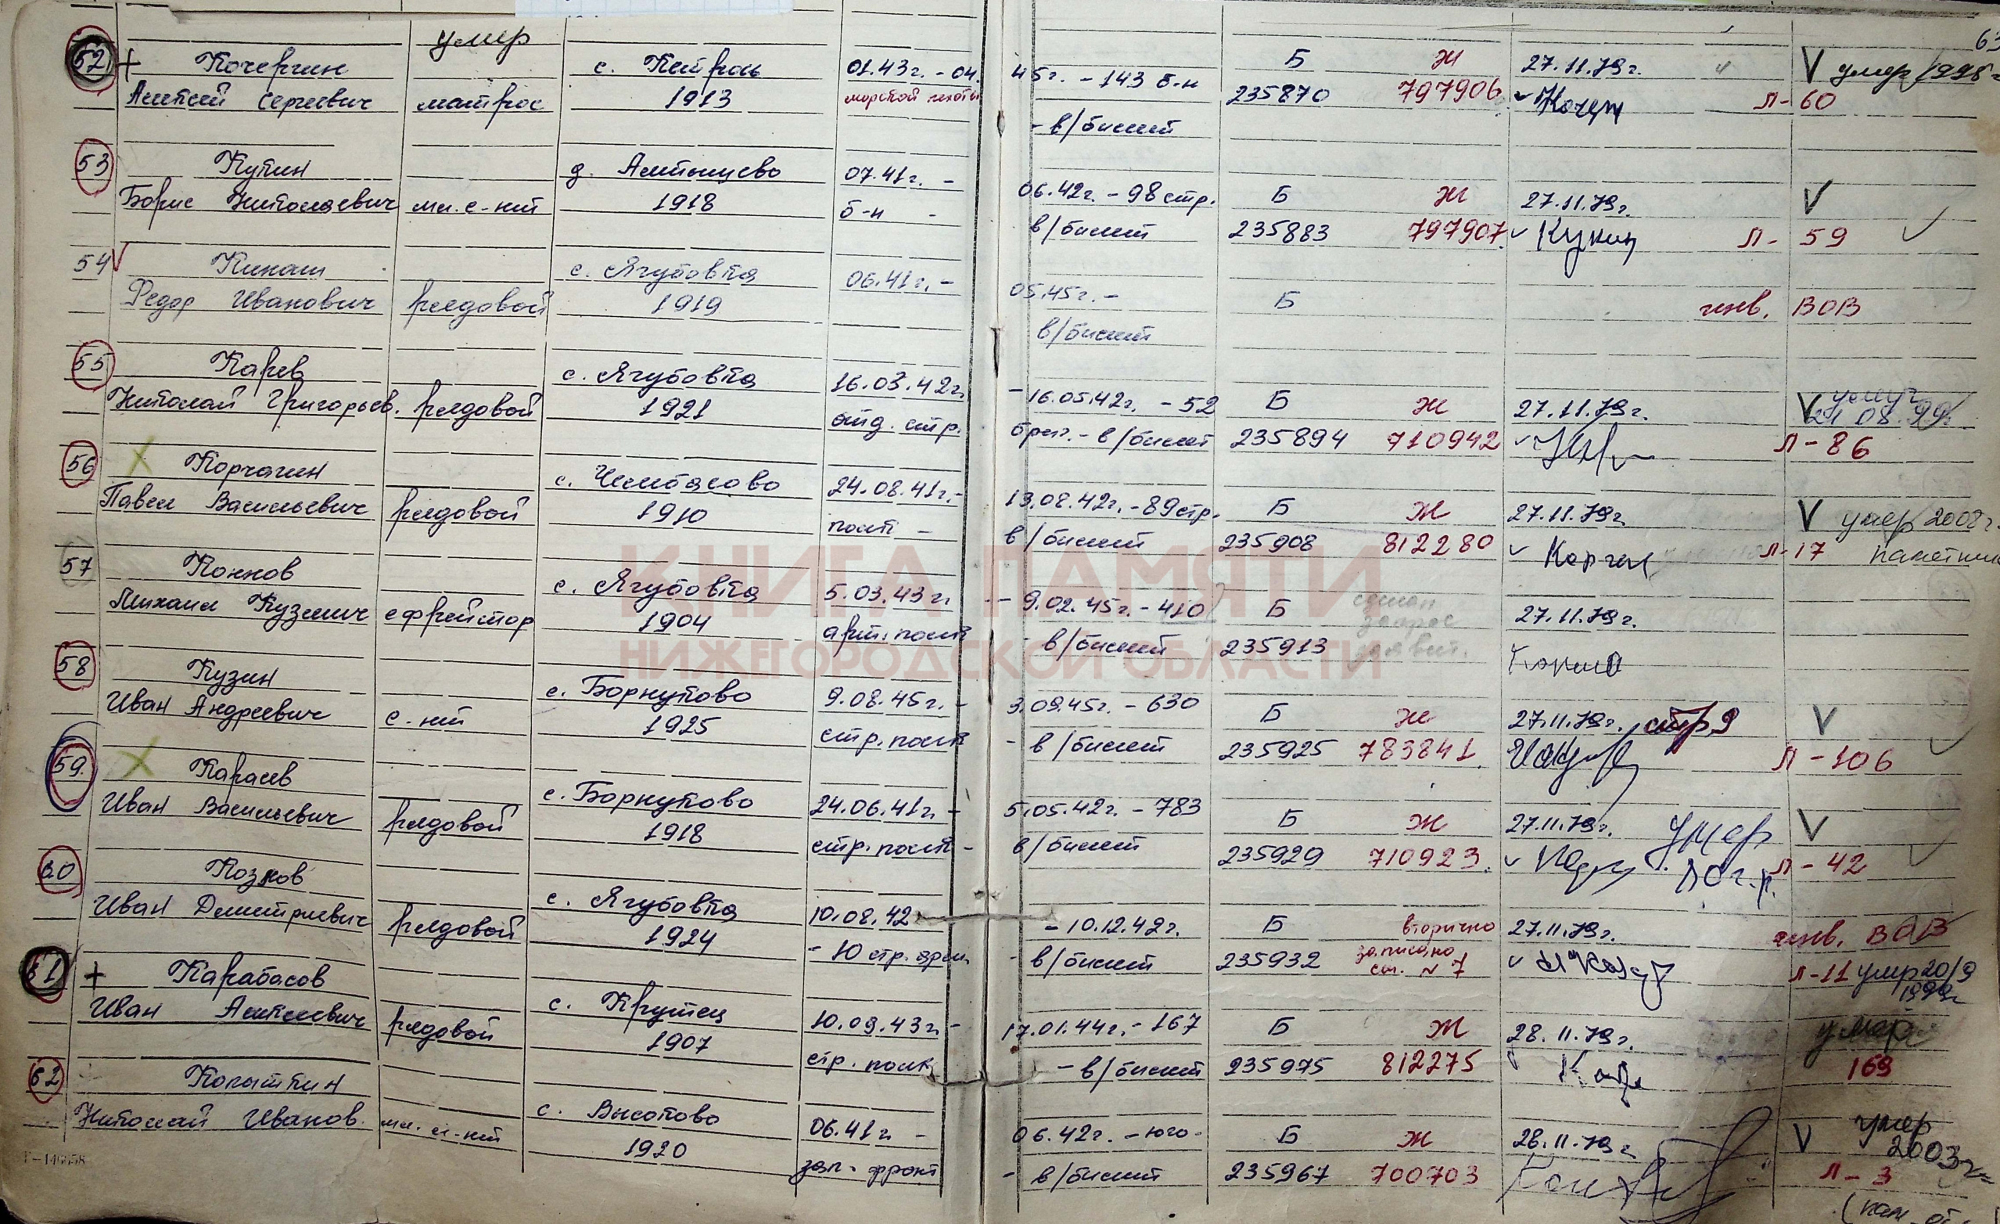 63
52 + Кочергин умер с. Кетрось 01.43г. - 04. 45г. - 143 б-н Б Ж 27.11.79г. V умер 1998г
Алексей Сергеевич матрос 1913 морской пехоты - в/билет 235870 797906 Л-60
53 Кукин д. Алтышево 07.41г. - 06.42г. - 98 стр. Б Ж 27.11.79г. V
Борис Николаевич мл. с-нт 1918 б-н - в/билет 235883 797907 Кукин Л-59
54 Кинаш с. Ягубовка 06.41г. - 05.45г. - Б
Федор Иванович рядовой 1919 в/билет инв. ВОВ
55 Карев с. Ягубовка 16.03.42г. - 16.05.42г. - 52 Б Ж 27.11.79г. V умер 21.08.99г.
Николай Григорьев. рядовой 1921 отд. стр. бриг. - в/билет 235894 710942 Л-86
56 Корчагин с. Чембасово 24.08.41г. - 13.08.42г. - 89 стр. Б Ж 27.11.79г V умер 2002г.
Павел Васильевич рядовой 1910 полк - в/билет 235908 812280 Л-17
57 Коннов с. Ягубовка 5.03.43г. - 9.02.45г. - 410 Б сделан запрос 27.11.79г.
Михаил Кузьмич ефрейтор 1904 арт. полк - в/билет 235913
КНИГА ПАМЯТИ
НИЖЕГОРОДСКОЙ ОБЛАСТИ
58 Кузин с. Борнуково 9.08.45г. - 3.09.45г. - 630 Б Ж 27.11.79г. стр 9 V
Иван Андреевич с-нт 1925 стр. полк - в/билет 235925 783841 Л-106
59. Карасев с. Борнуково 24.06.41г. - 5.05.42г. - 783 Б Ж 27.11.79г. умер V
Иван Васильевич рядовой 1918 стр. полк - в/билет 235929 710923 Л-42
60 Козлов с. Ягубовка 10.08.42 - 10.12.42г. Б вторично 27.11.79г. инв. ВОВ
Иван Дмитриевич рядовой 1924 - 10 стр. - в/билет 235932 записано см. № 7 Л-11 умер 20/9 1999г
61 + Карабасов с. Крутец 10.09.43г. - 17.01.44г. - 167 Б Ж 28.11.79г. умер
Иван Алексеевич рядовой 1907 стр. полк - в/билет 235975 812275 169
62 Копыткин с. Высоково 06.41г. - 06.42г. - юго- Б Ж 28.11.79г V умер 2003г
Николай Иванов. мл. с-нт 1920 зап. фронт - в/билет 235967 700703 Л-3